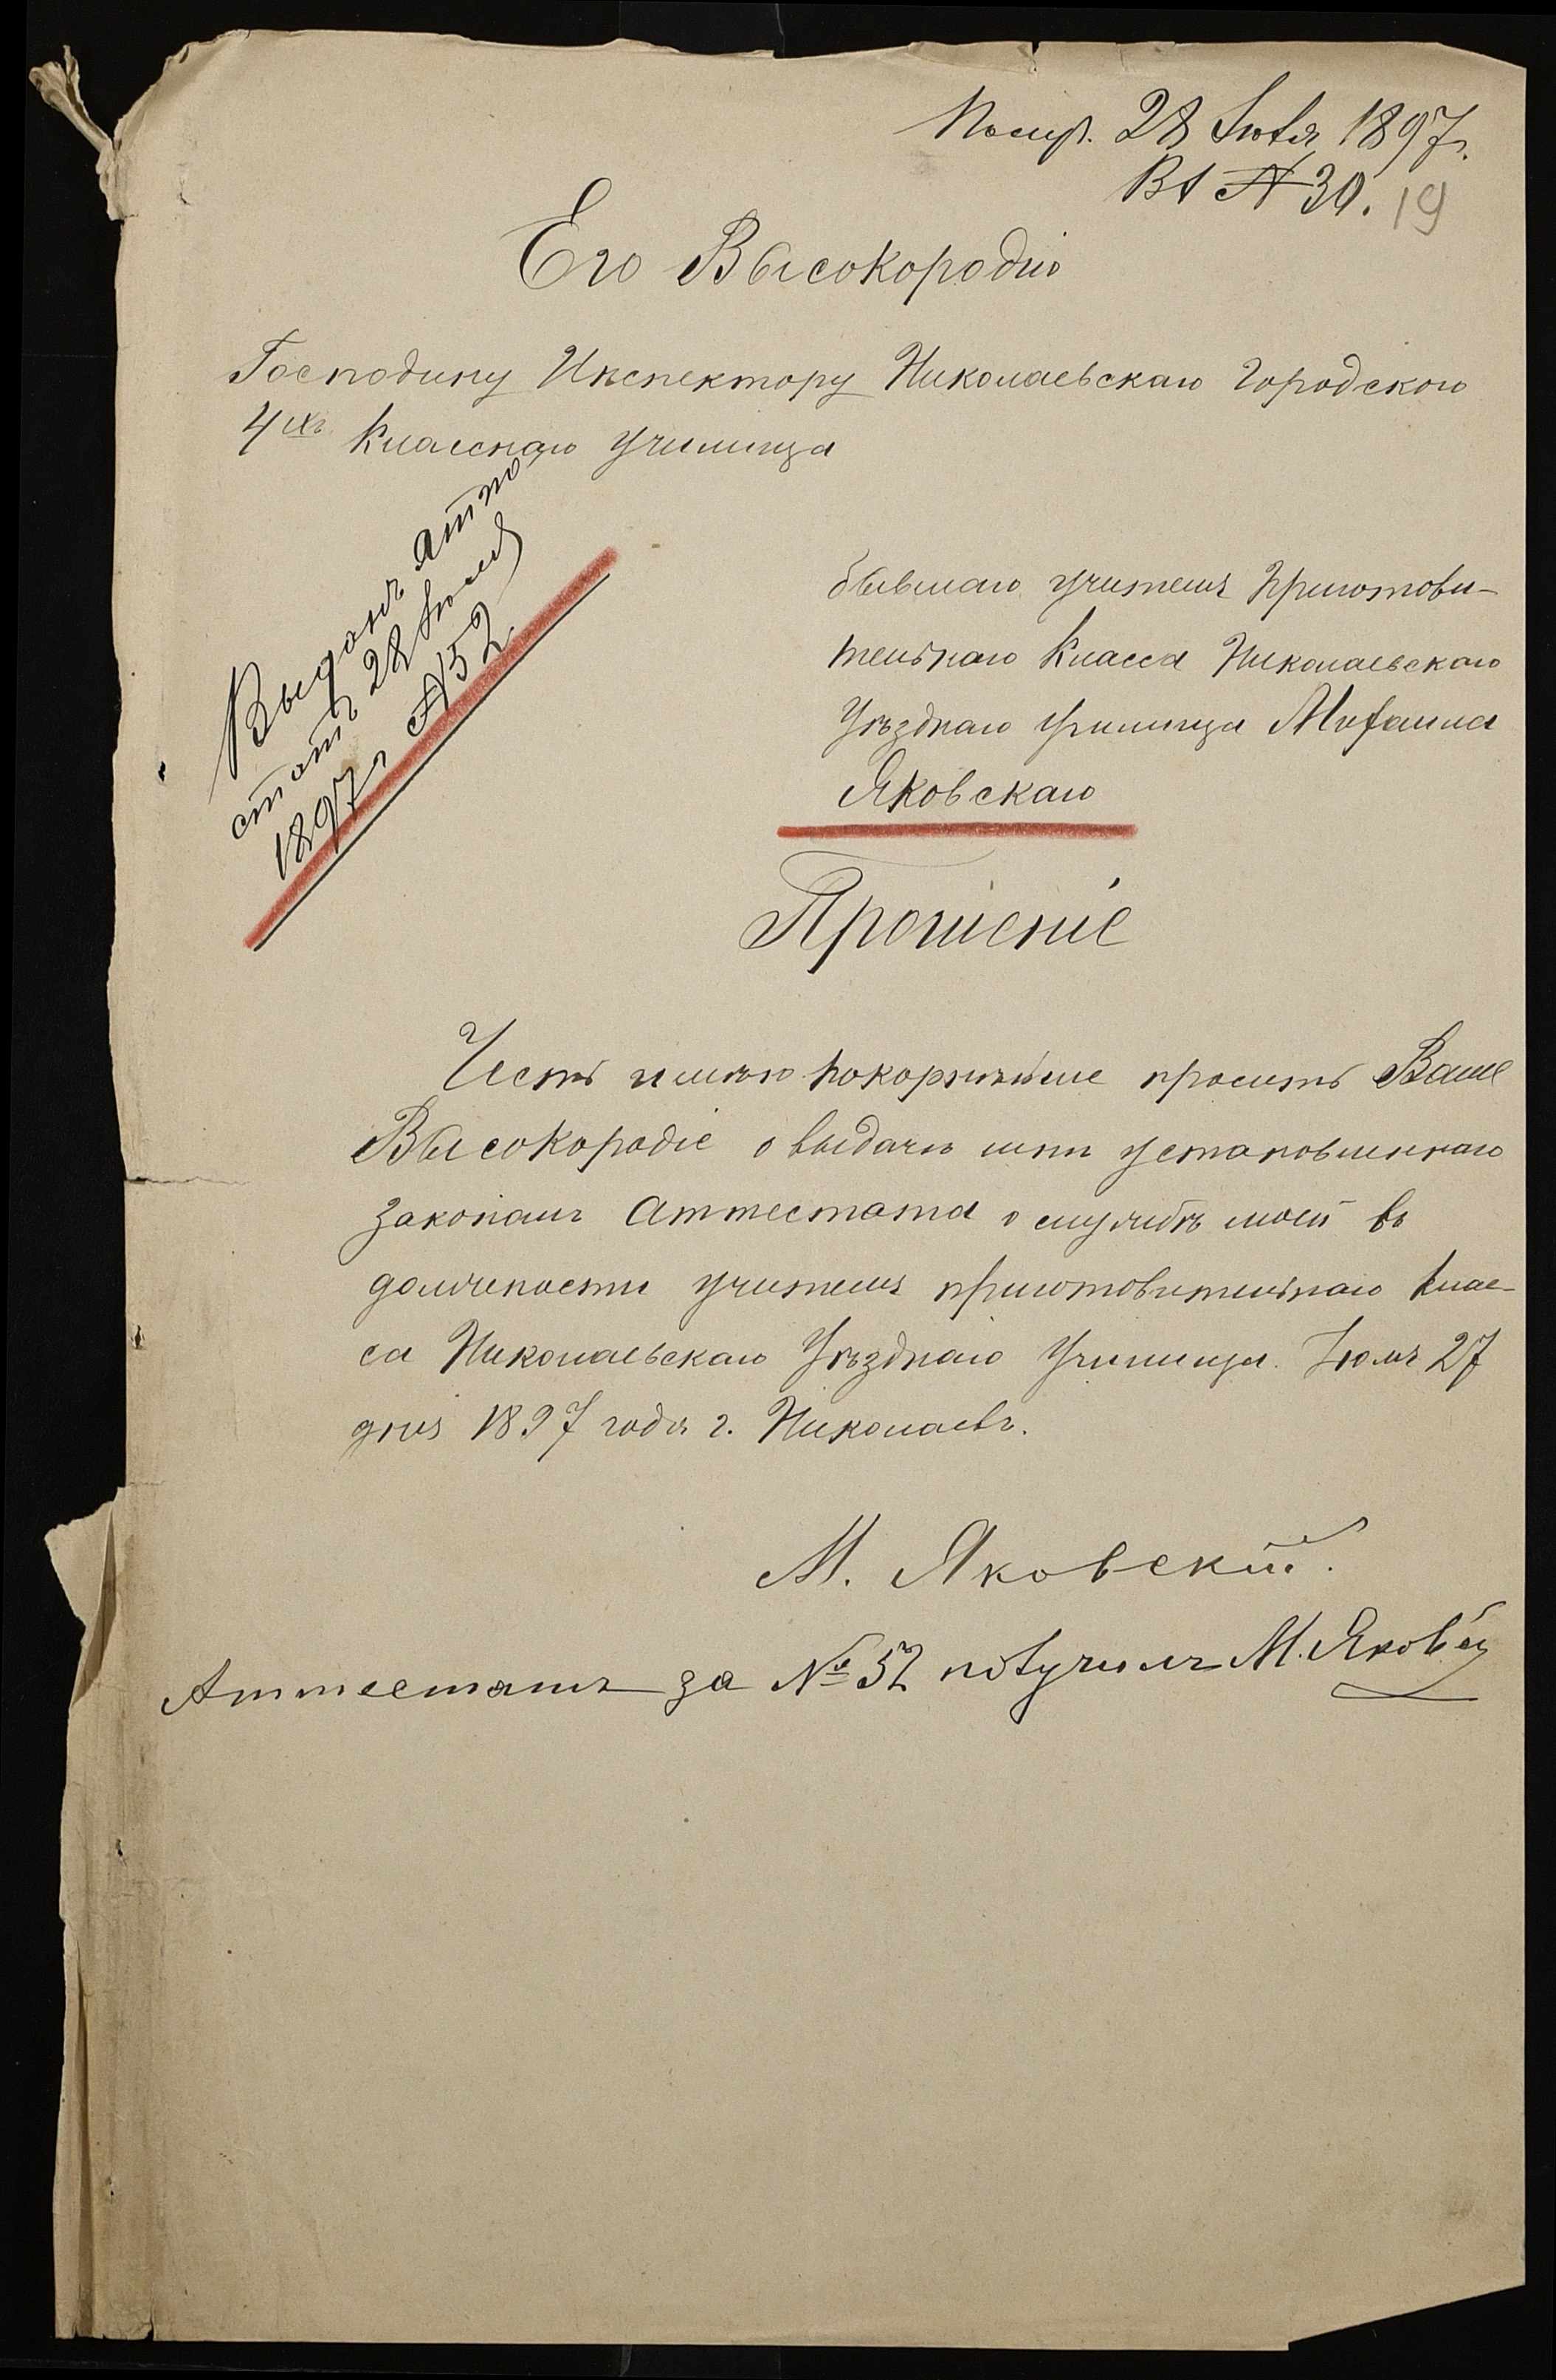 Получ. 28 Іюля 1897 г.
Вх № 30. 19
Его Высокородію
Господину Инспектору Николаевскаго Городского
4хъ Класснаго Училища
Выданъ атте
статъ 28 Іюля
1897 г № 52.
бывшаго учителя Приготови-
тельнаго Класса Николаевскаго
Уѣзднаго Училища Михаила
Яковскаго
Прошеніе
Честь имѣю покорнѣйше просить Ваше
Высокородіе о выдачѣ мнѣ установленнаго
закономъ Аттестата о службѣ моей въ
должности учителя приготовительнаго клас-
са Николаевскаго Уѣзднаго Училища. Іюля 27
дня 1897 года г. Николаевъ.
М. Яковскій.
Аттестатъ за № 52 получилъ М. Яков